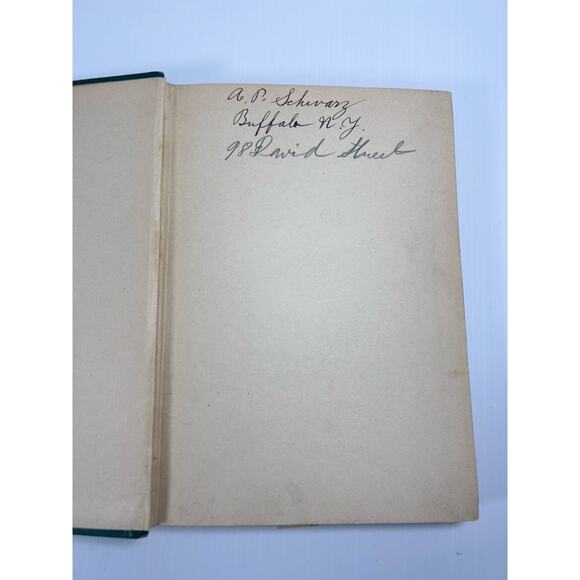 A. P. Schwarz
Buffalo N.Y.
98 David Street